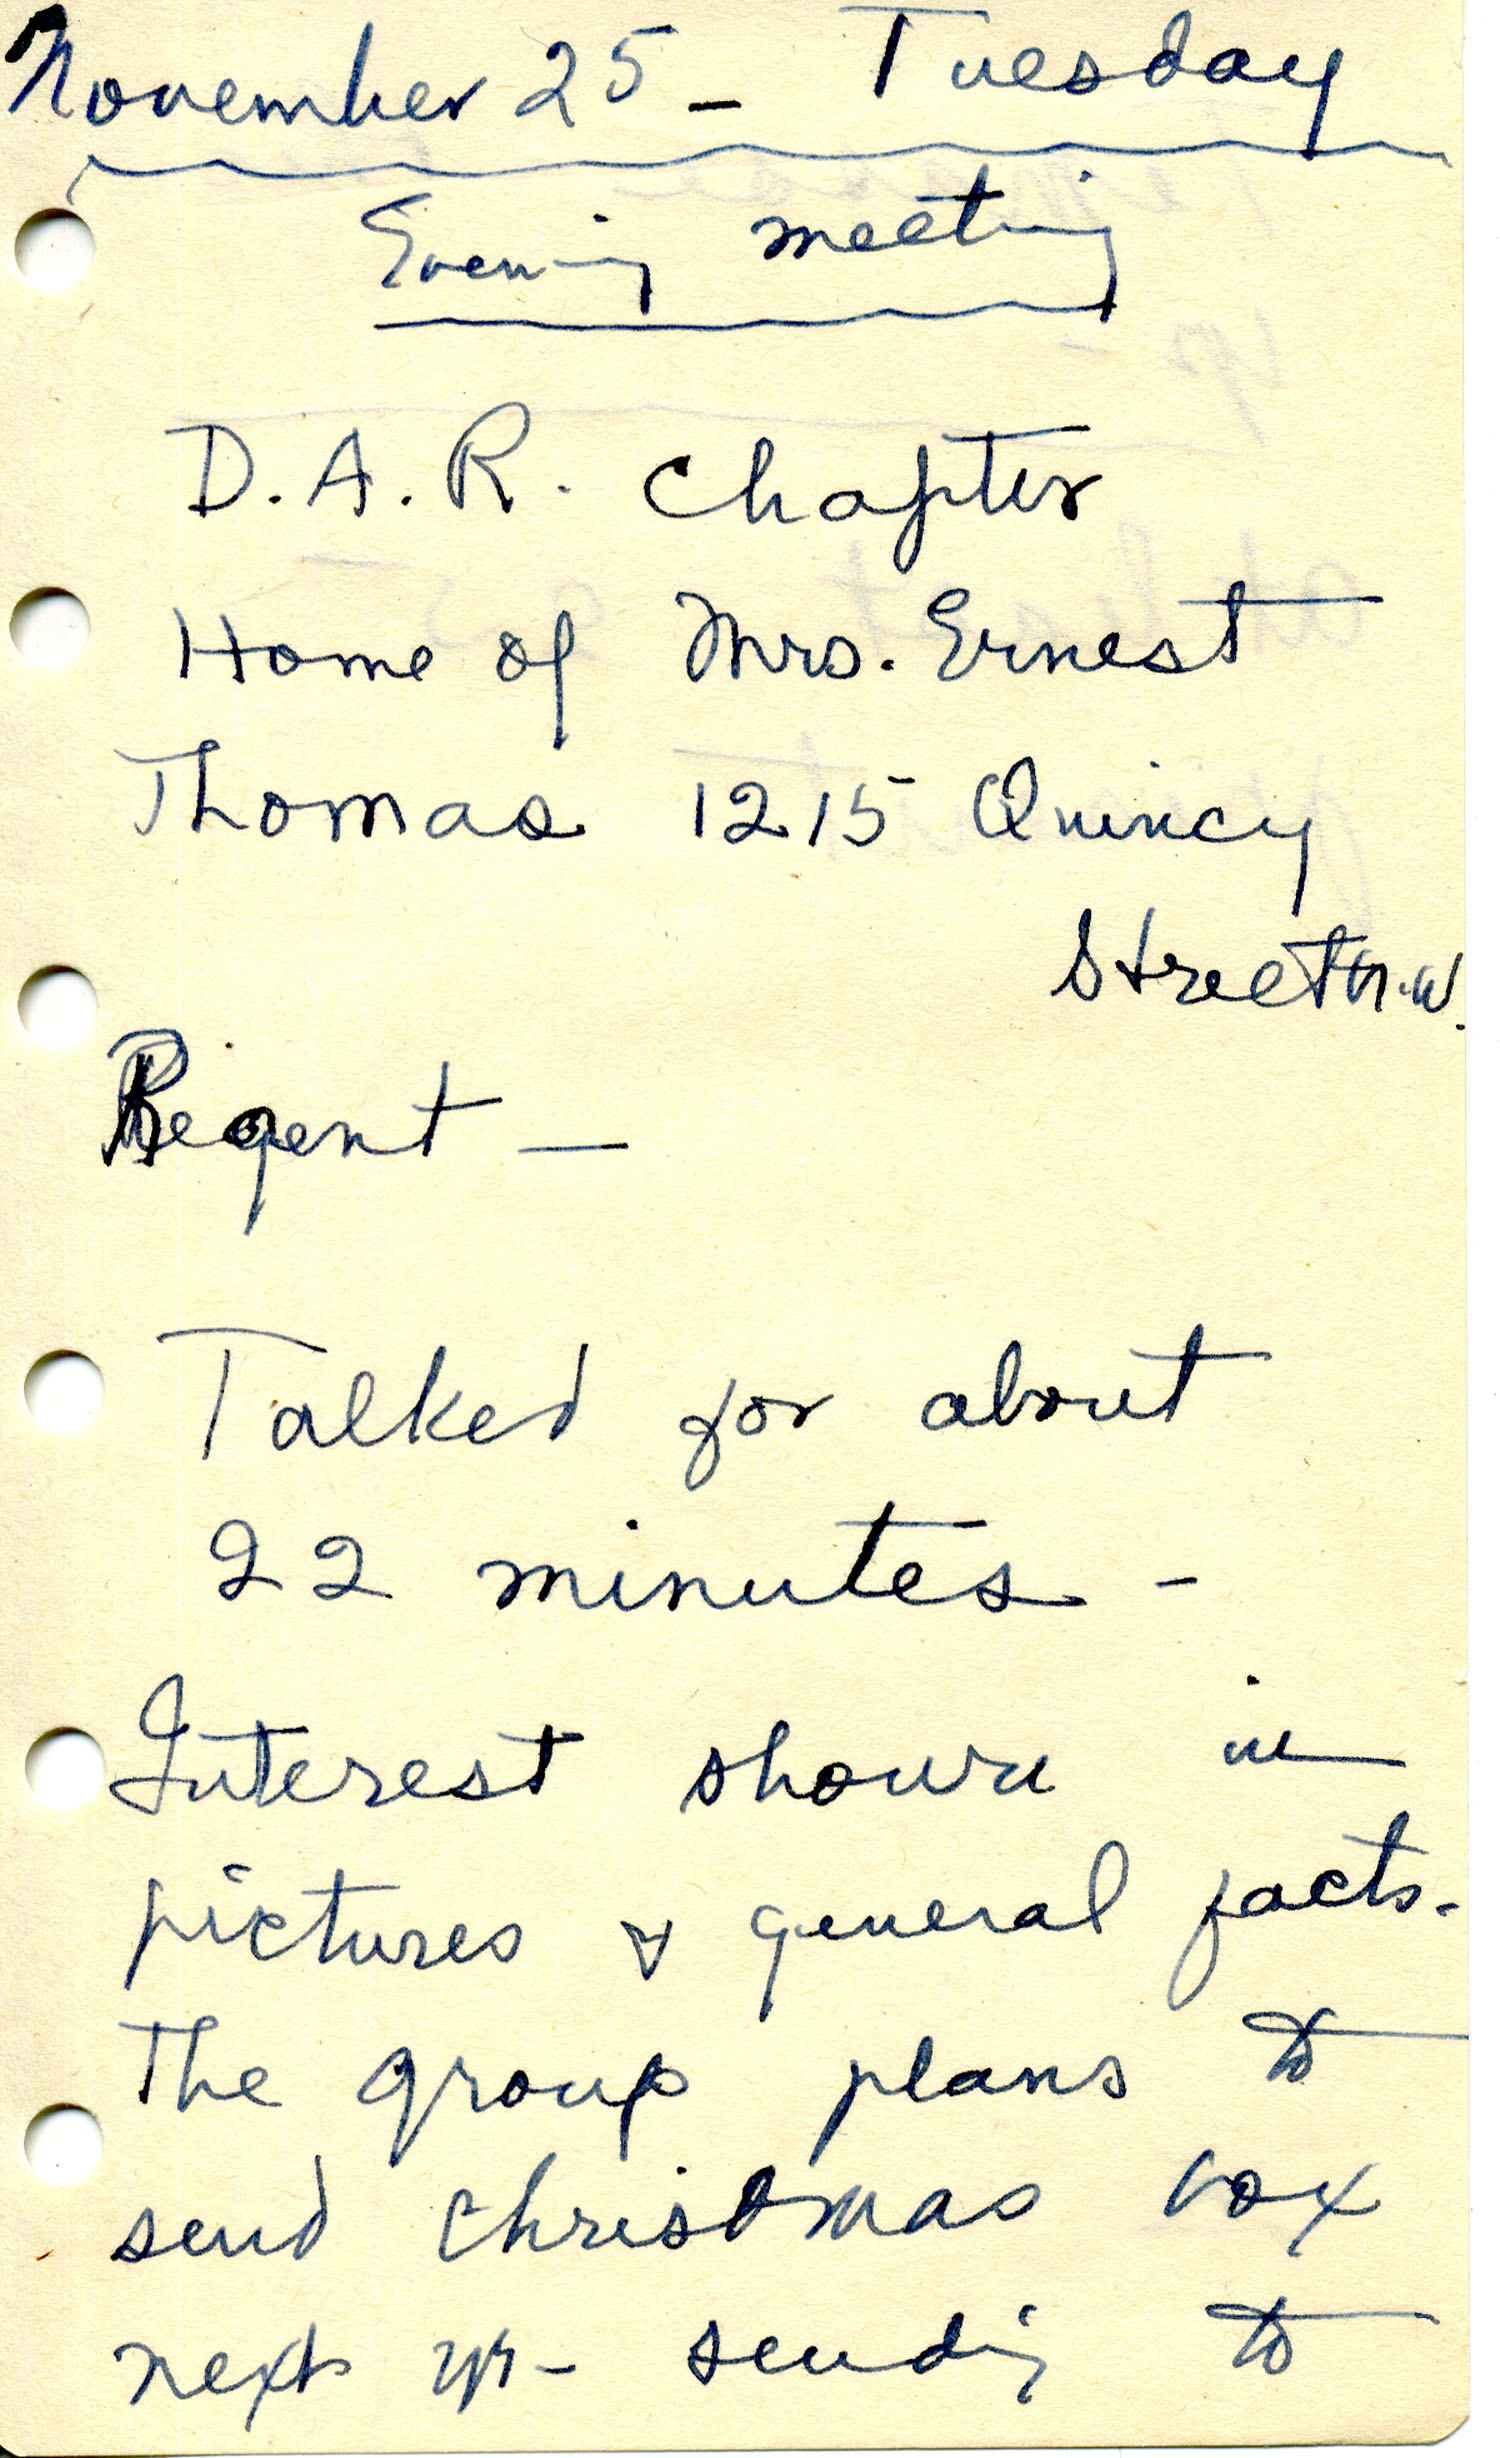 November 25 - Tuesday
Evening meeting
D.A.R. Chapter
Home of Mrs. Ernest
Thomas 1215 Quincy
Street N.W.
Regent —
Talked for about
22 minutes -
Interest shown in
pictures & general facts.
The group plans to
send Christmas box
next yr - sending to